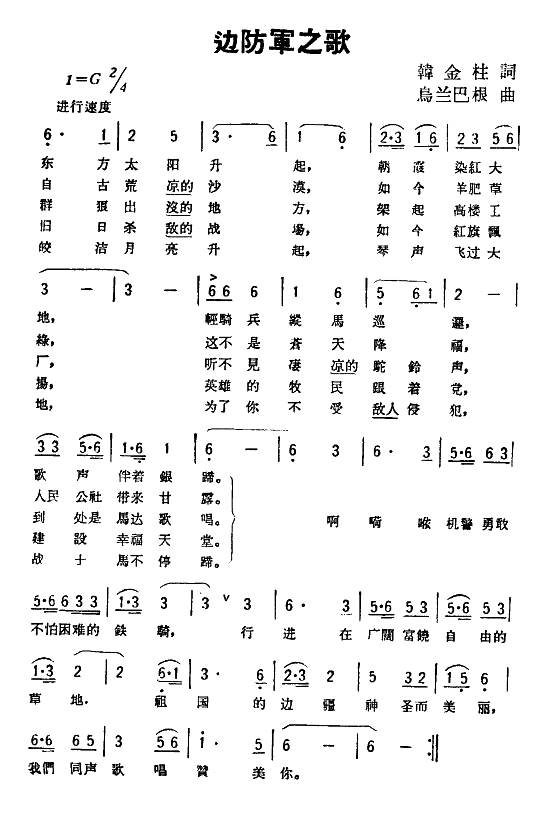 边防軍之歌
1=G 2/4
韓金柱 詞
進行速度
烏兰巴根 曲
6· 1 | 2 5 | 3· 6 | 1 6 | 2·3 1 6 | 2 3 5 6 |
东方太阳升起，朝霞染紅大
自古荒凉的沙漠，如今羊肥草
群狼出沒的地方，架起高楼工
旧日杀敌的战場，如今紅旗飄
皎洁月亮升起，琴声飞过大
3 — | 3 — | 6 6 6 | 1 6 | 5 6 1 | 2 — |
地，輕騎兵縱馬巡邏，
綠，这不是蒼天降福，
厂，听不見凄凉的駝鈴声，
揚，英雄的牧民跟着党，
地，为了你不受敌人侵犯，
3 3 5·6 | 1·6 1 | 6 — | 6 3 | 6· 3 | 5·6 6 3 |
歌声伴着銀蹄。
人民公社带来甘露。
到处是馬达歌唱。
啊嗬咴机警勇敢
建設幸福天堂。
战士馬不停蹄。
5·6 6 3 3 | 1·3 3 | 3 ∨ 3 | 6· 3 | 5·6 5 3 | 5·6 5 3 |
不怕困难的鉄騎，行进在广闊富饒自由的
1·3 2 | 2 6·1 | 3· 6 | 2·3 2 | 5 3 2 | 1 5 6 |
草地·祖国的边疆神圣而美丽，
6·6 6 5 | 3 5 6 | 1· 5 | 6 — | 6 — :||
我們同声歌唱贊美你。